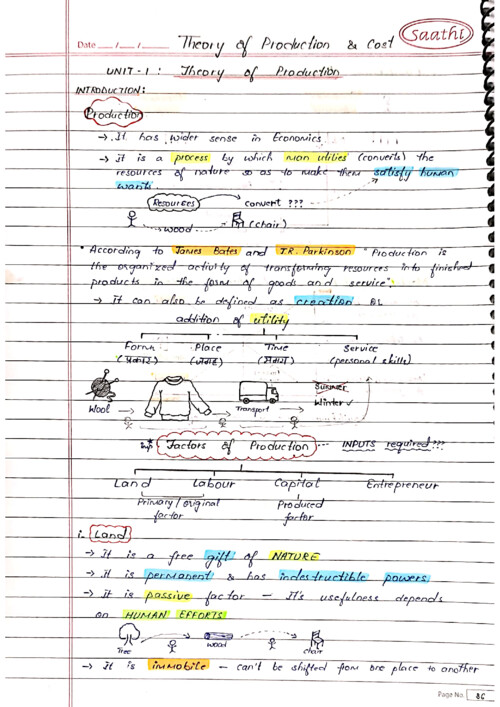 Saathi
Date ___/___/___ Theory of Production & Cost
UNIT-1 : Theory of Production
INTRODUCTION:
Production
→ It has wider sense in Economics
→ It is a process by which man utilies (converts) the
resources of nature so as to make them satisfy human
wants.
Resources convert ???
wood (chair)
* According to James Bates and J.R. Parkinson "Production is
the organized activity of transforming resources into finished
products in the form of goods and service".
→ It can also be defined as creation or
addition of utility
Form Place Time Service
(प्रकार) (जगह) (समय) (personal skills)
Summer
Wool → → Transport → Winter ✓
Imp Factors of Production INPUTS required???
Land Labour Capital Entrepreneur
Primary/original Produced
factor factor
i. Land
→ It is a free gift of NATURE
→ It is permanent & has indestructible powers
→ It is passive factor - It's usefulness depends
on HUMAN EFFORTS
Tree wood chair
→ It is immobile - can't be shifted from one place to another
Page No. 86